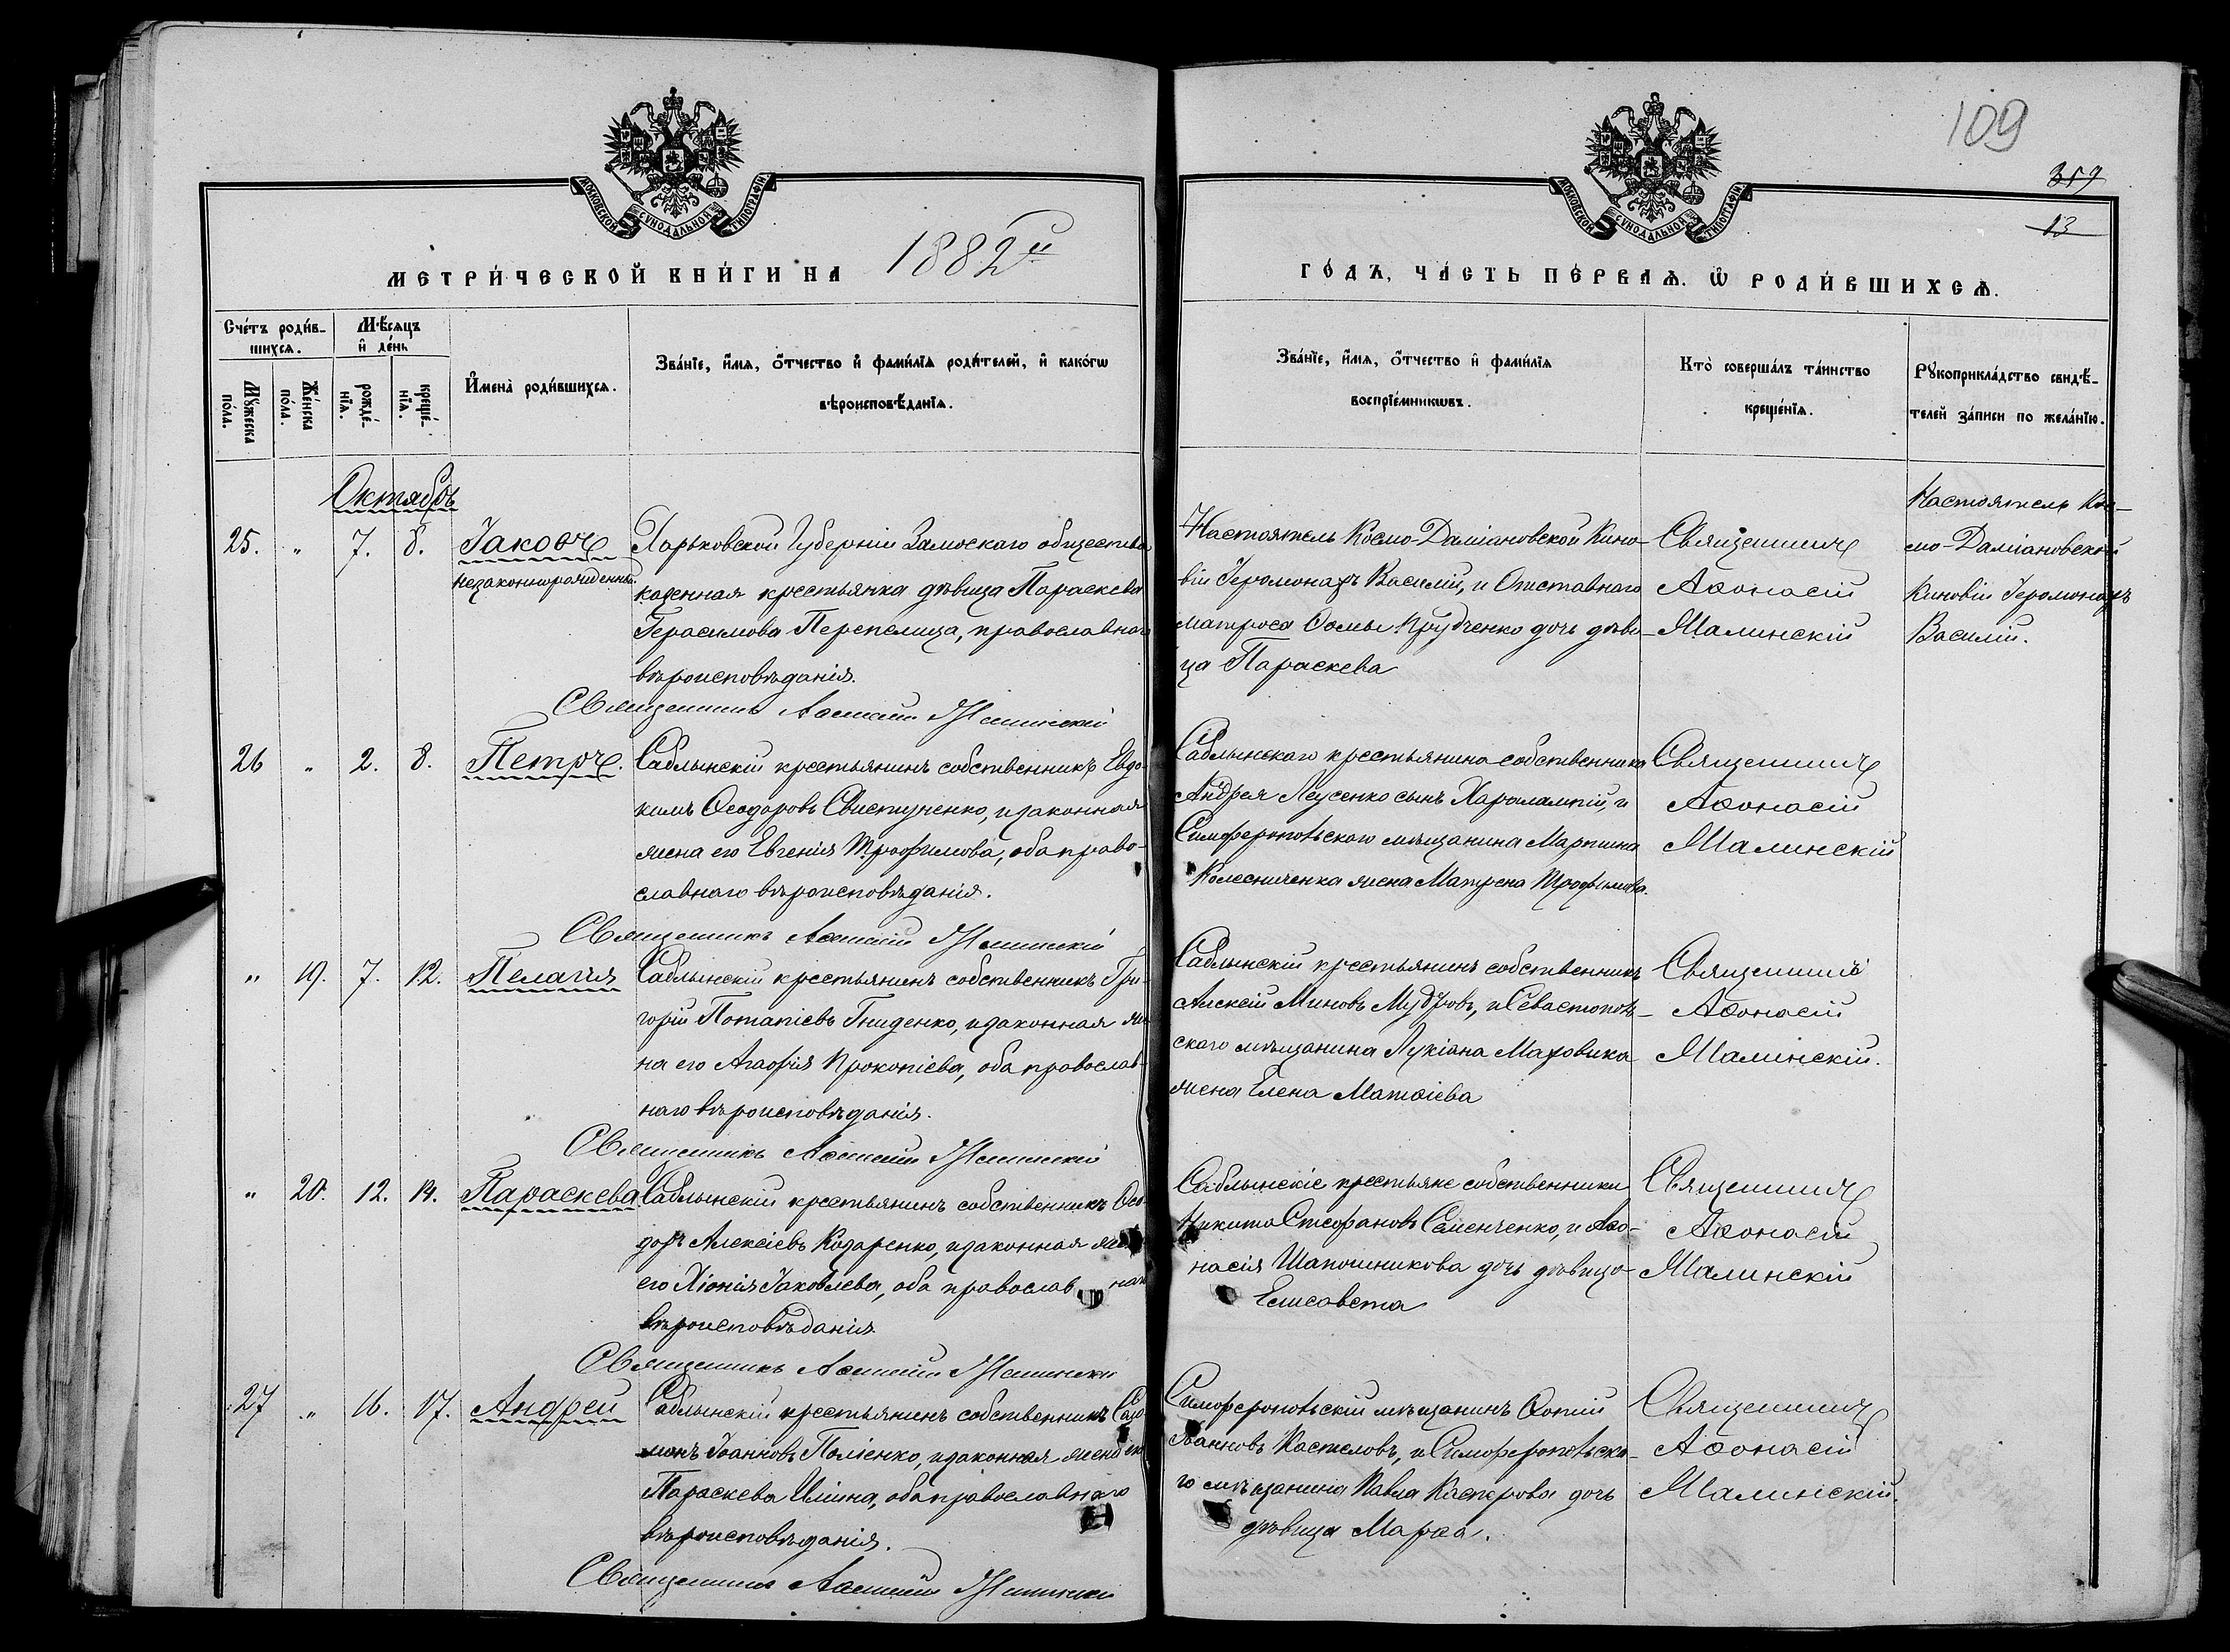 109
359
13
МОСКОВСКОЙ СѴНОДАЛЬНОЙ ТИПОГРАФІИ
МОСКОВСКОЙ СѴНОДАЛЬНОЙ ТИПОГРАФІИ
МЕТРИ́ЧЕСКОЙ КНИ́ГИ НА 1882й
ГО́ДЪ, ЧА́СТЬ ПЕ́РВАѦ. Ѡ҆ РОДИ́ВШИХСѦ.
Сче́тъ роди́в-
шихсѧ.
Мѣ́сѧцъ
и҆ де́нь
И҆мена̀ роди́вшихсѧ.
Зва́нїе, и҆́мѧ, ѻ҆́тчество и҆ фами́лїѧ роди́телей, и҆ како́гѡ
вѣроисповѣ́данїѧ.
Мꙋ́жеска
по́ла.
Же́нска
по́ла.
рожде́-
нїѧ.
креще́-
нїѧ.
Зва́нїе, и҆́мѧ, ѻ҆́тчество и҆ фами́лїѧ
воспрїе́мникѡвъ.
Кто̀ соверша́лъ та́инство
креще́нїѧ.
Рꙋкоприкла́дство свидѣ́-
телей за́писи по жела́нїю.
Октябрь
25. „ 7. 8. Іаковъ
незаконнорожденный.
Харьковской Губерніи Замоскаго общества
казенная крестьянка дѣвица Параскева
Герасимова Перепелица, православнаго
вѣроисповѣданія.
Священникъ Аѳонасій Малинскій
Настоятель Космо-Даміановской Кино-
віи Іеромонахъ Василій, и Отставнаго
матроса Ѳомы Прудченко дочь дѣви-
ца Параскева
Священникъ
Аѳонасій
Малинскій
Настоятель Кос-
мо-Даміановской
Киновіи Іеромонахъ
Василій.
26 „ 2. 8. Петръ.
Саблынскій крестьянинъ собственникъ Евдо-
кимъ Ѳеодоровъ Свистуненко, и законная
жена его Евгенія Трофимова, оба право-
славнаго вѣроисповѣданія.
Священникъ Аѳонасій Малинскій
Саблынскаго крестьянина собственника
Андрея Леусенко сынъ Харалампій, и
Симферопольскаго мѣщанина Мартина
Колесниченка жена Матрена Трофимова.
Священникъ
Аѳонасій
Малинскій
„ 19. 7. 12. Пелагія
Саблынскій крестьянинъ собственникъ Гри-
горій Потапіевъ Гниденко, и законная же-
на его Агафія Прокопіева, оба православ-
наго вѣроисповѣданія.
Священникъ Аѳонасій Малинскій
Саблынскій крестьянинъ собственникъ
Алексій Миновъ Мудровъ, и Севастополь-
скаго мѣщанина Лукіана Маховика
жена Елена Матѳіева
Священникъ
Аѳонасій
Малинскій.
„ 20. 12. 14. Параскева.
Саблынскій крестьянинъ собственникъ Ѳео-
доръ Алексіевъ Козаренко, и законная жена
его Хіонія Іаковлева, оба православнаго
вѣроисповѣданія.
Священникъ Аѳонасій Малинскій
Саблынскіе крестьяне собственники
Никита Стефановъ Семенченко, и Аѳо-
насія Шапошникова дочь дѣвица
Елисавета
Священникъ
Аѳонасій
Малинскій
27 „ 16. 17. Андрей
Саблынскій крестьянинъ собственникъ
Іоанновъ и законная жена его
Параскева Иліина, оба православнаго
вѣроисповѣданія.
Священникъ Аѳонасій Малинскій
Симферопольскій мѣщанинъ Фотій
Іоанновъ Кастеловъ, и Симферопольска-
го мѣщанина Павла Касперова дочь
дѣвица Марѳа.
Священникъ
Аѳонасій
Малинскій.